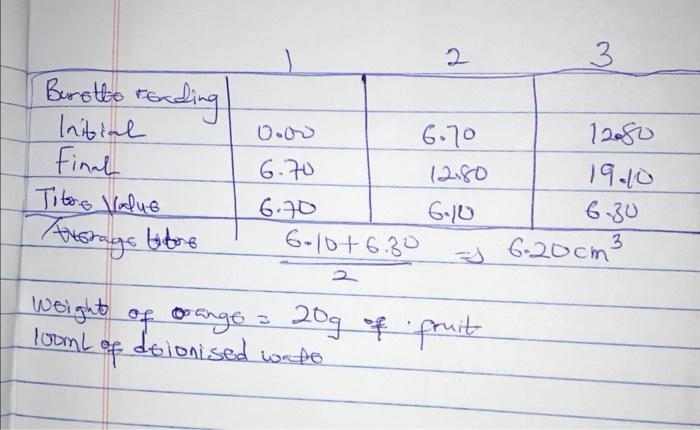 1 2 3
Burette reading
Initial 0.00 6.70 12.80
Final 6.70 12.80 19.10
Titre Value 6.70 6.10 6.30
Average titre 6.10+6.30 / 2 => 6.20cm³
Weight of orange = 20g of fruit
100mL of deionised wate